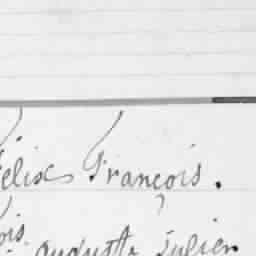 Félix François.
ois Auguste Julien